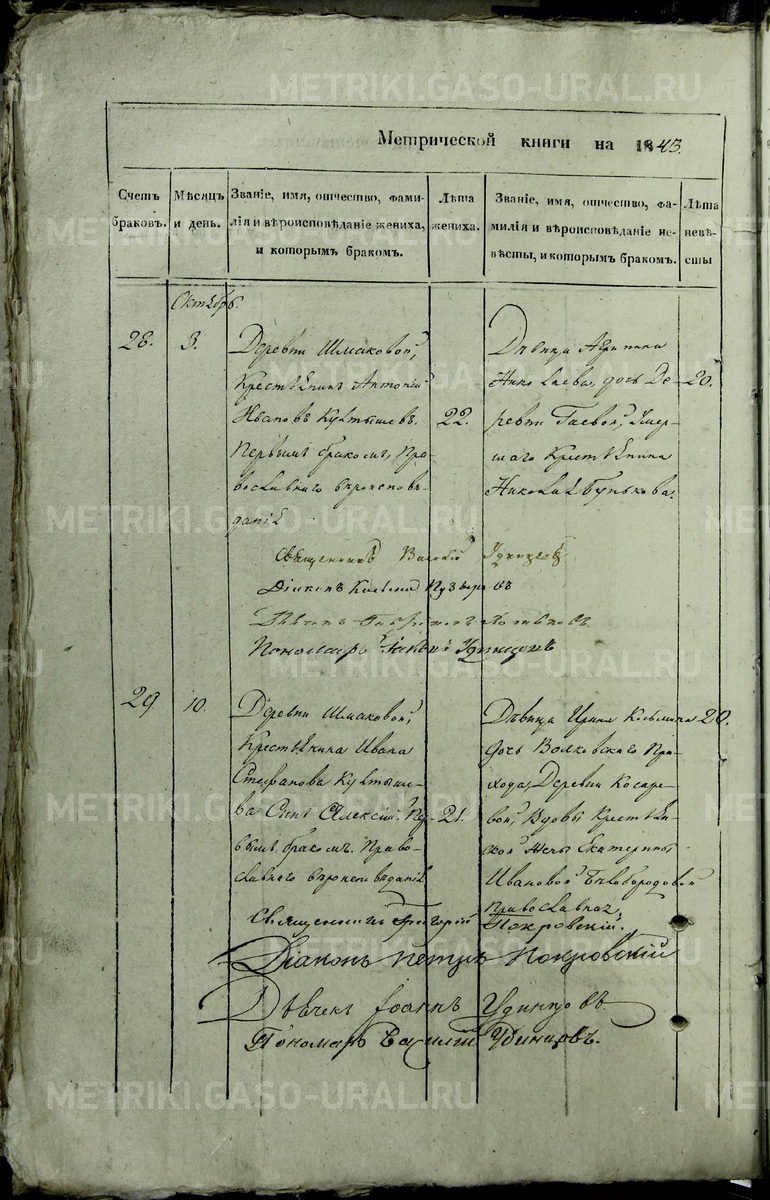 METRIKI.GASO-URAL.RU
Метрической книги на 1843.
Счетъ браковъ.
Мѣсяцъ и день.
Званіе, имя, отчество, фамилія и вѣроисповѣданіе жениха, и которымъ бракомъ.
Лѣта жениха.
Званіе, имя, отчество, фамилія и вѣроисповѣданіе невѣсты, и которымъ бракомъ.
Лѣта невѣсты
Октябрь.
28.
3.
Деревни Шмаковой,
Крестьянинъ Антоній
Ивановъ Култышевъ.
Первымъ бракомъ, Пра-
вославнаго вѣроисповѣ-
данія
22.
Дѣвица Агрипина
Николаева, дочь Де-
ревни Гаевой, Умер-
шаго Крестьянина
Николая Бунькова.
20.
Священникъ Василій Удинцевъ
Діаконъ Козьма Пузыревъ
Пономарь Іаковъ Удинцовъ
29
10
Деревни Шмаковой,
Крестьянина Ивана
Стефанова Култыше-
ва Сынъ Алексій. Пер-
вымъ бракомъ. Право-
славнаго вѣроисповѣданія
21.
Дѣвица Ирина Козьмина
дочь Волковскаго При-
хода, Деревни Косаре-
вой, Вдовы Крестьян-
ской Жены Екатерины
Ивановой Бѣлобородовой
Православная,
20.
Священникъ Григорій Покровскій.
Діаконъ Петръ Покровскій
Дьячекъ Іоаннъ Удинцовъ.
Пономарь Василій Удинцовъ.